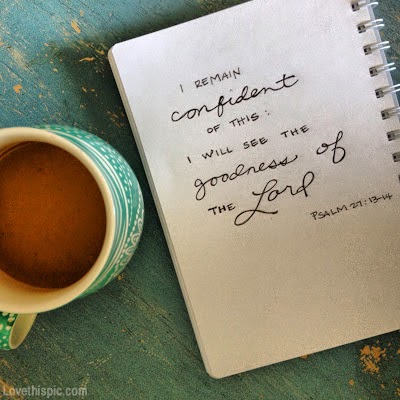 I REMAIN
confident
OF THIS:
I WILL SEE THE
goodness of
THE Lord
PSALM 27:13-14
Lovethispic.com